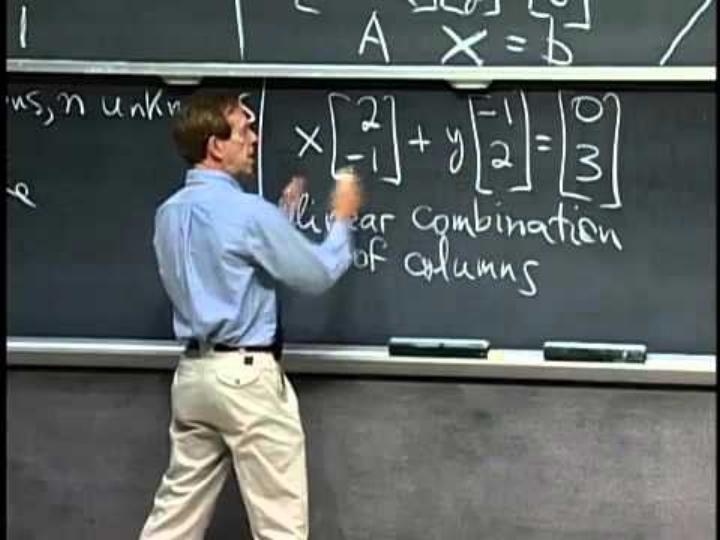 1
A X = b
n unknowns
x [2 -1] + y [-1 2] = [0 3]
linear combination
of columns